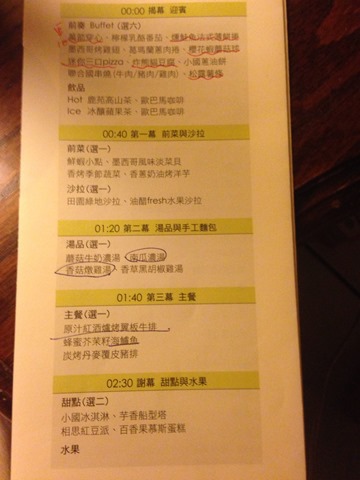 00:00 揭幕 迎賓
前奏 Buffet (選六)
蔥節穿心、檸檬乳酪番茄、燻鮭魚法
墨西哥烤雞翅、萬嘴蔥肉捲、櫻花蝦蘑菇球
迷你三口pizza、炸熊貓豆腐、小國蔥油餅
聯合國串燒 (牛肉/豬肉/雞肉)、松露薯條
飲品
Hot 鹿苑高山茶、歐巴馬咖啡
Ice 冰釀蘋果茶、歐巴馬咖啡
00:40 第一幕 前菜與沙拉
前菜 (選一)
鮮蝦小點、墨西哥風味淡菜貝
香烤季節蔬菜、香蔥奶油烤洋芋
沙拉 (選一)
田園綠地沙拉、油醋fresh水果沙拉
01:20 第二幕 湯品與手工麵包
湯品 (選一)
蘑菇牛奶濃湯、南瓜濃湯
香菇燉雞湯、香草黑胡椒雞湯
01:40 第三幕 主餐
主餐 (選一)
原汁紅酒爐烤翼板牛排
蜂蜜芥茉籽海鱸魚
炭烤丹麥覆皮豬排
02:30 謝幕 甜點與水果
甜點 (選二)
小國冰淇淋、芋香船型塔
相思紅豆派、百香果慕斯蛋糕
水果